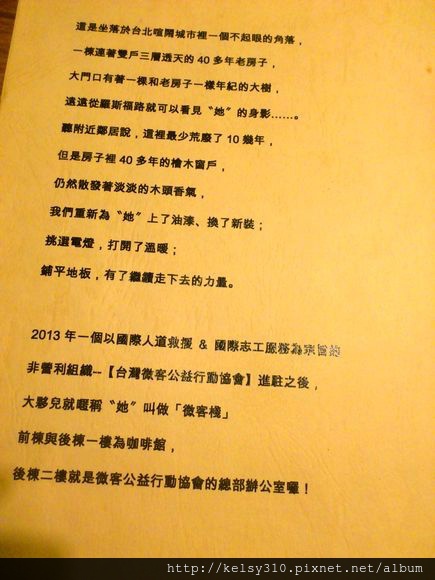 這是坐落於台北喧鬧城市裡一個不起眼的角落，
一棟連著雙戶三層透天的 40 多年老房子，
大門口有著一棵和老房子一樣年紀的大樹，
遠遠從羅斯福路就可以看見〝她〞的身影……。
聽附近鄰居說，這裡最少荒廢了 10 幾年，
但是房子裡 40 多年的檜木窗戶，
仍然散發著淡淡的木頭香氣，
我們重新為〝她〞上了油漆、換了新裝；
挑選電燈，打開了溫暖；
鋪平地板，有了繼續走下去的力量。
2013 年一個以國際人道救援 & 國際志工服務為宗旨的
非營利組織--【台灣微客公益行動協會】進駐之後，
大夥兒就暱稱〝她〞叫做「微客棧」
前棟與後棟一樓為咖啡館，
後棟二樓就是微客公益行動協會的總部辦公室囉！
http://kelsy310.pixnet.net/album